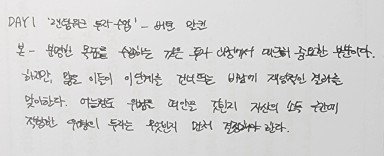 DAY1 '랜덤워크 투자수업' - 버튼 말킬
본 - 분명한 목표를 수립하는 것은 투자 과정에서 대단히 중요한 부분이다.
하지만, 많은 이들이 이 단계를 건너뛰는 바람에 재앙적인 결과를
맞이한다. 어느정도 위험을 떠안을 것인지 자신의 소득 구간에
적합한 유형의 투자는 무엇인지 먼저 결정해야 한다.